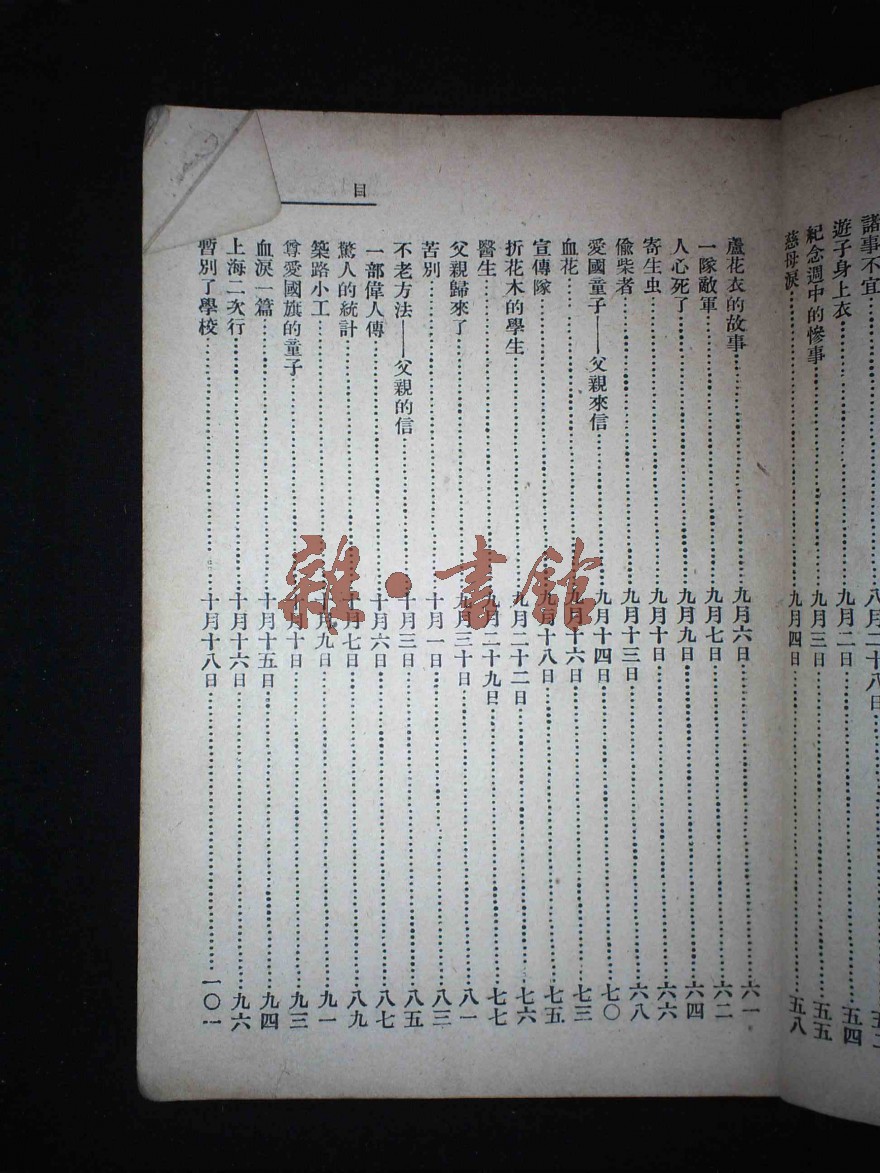 諸事不宜……八月二十八日……五二
遊子身上衣……九月二日……五四
紀念週中的慘事……九月三日……五五
慈母淚……九月四日……五八
目
蘆花衣的故事……九月六日……六一
一隊敵軍……九月七日……六二
人心死了……九月九日……六四
寄生虫……九月十日……六六
偷柴者……九月十三日……六八
愛國童子——父親來信……九月十四日……七〇
血花……九月十六日……七三
宣傳隊……九月十八日……七五
折花木的學生……九月二十二日……七六
醫生……九月二十九日……七七
父親歸來了……九月三十日……八一
苦別……十月一日……八三
不老方法——父親的信……十月三日……八五
一部偉人傳……十月六日……八七
驚人的統計……十月七日……八九
築路小工……十月九日……九一
尊愛國旗的童子……十月十日……九三
血淚一篇……十月十五日……九四
上海二次行……十月十六日……九六
暫別了學校……十月十八日……一〇一
雜·書館